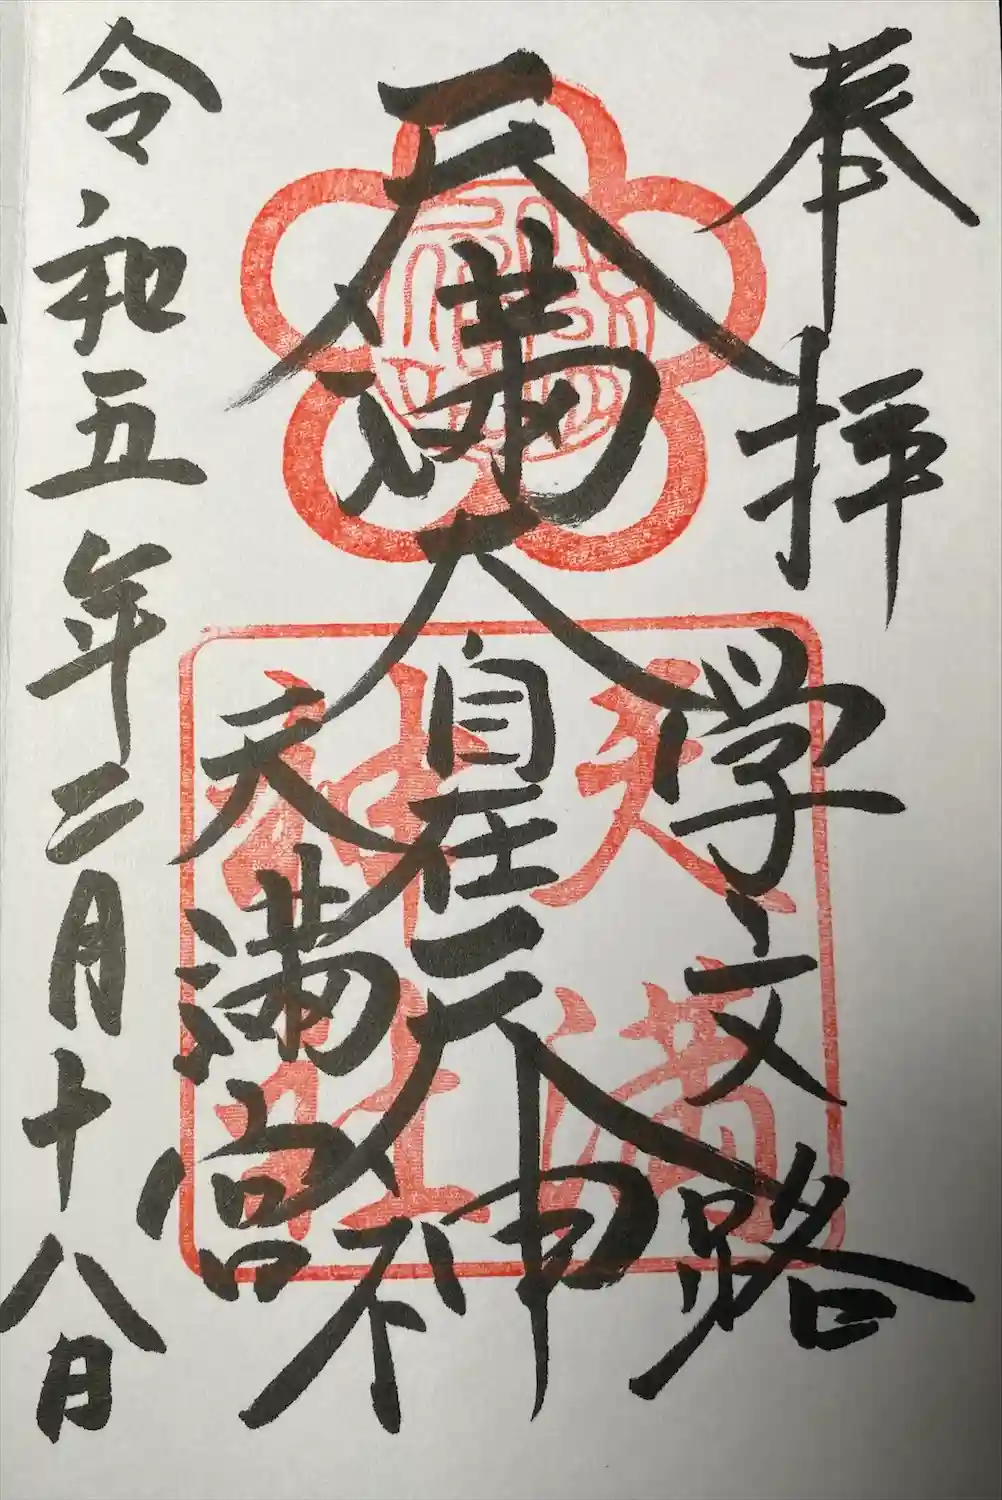 奉拝
学文路
天満大自在天神
天満宮
令和五年二月十八日
天満
神社